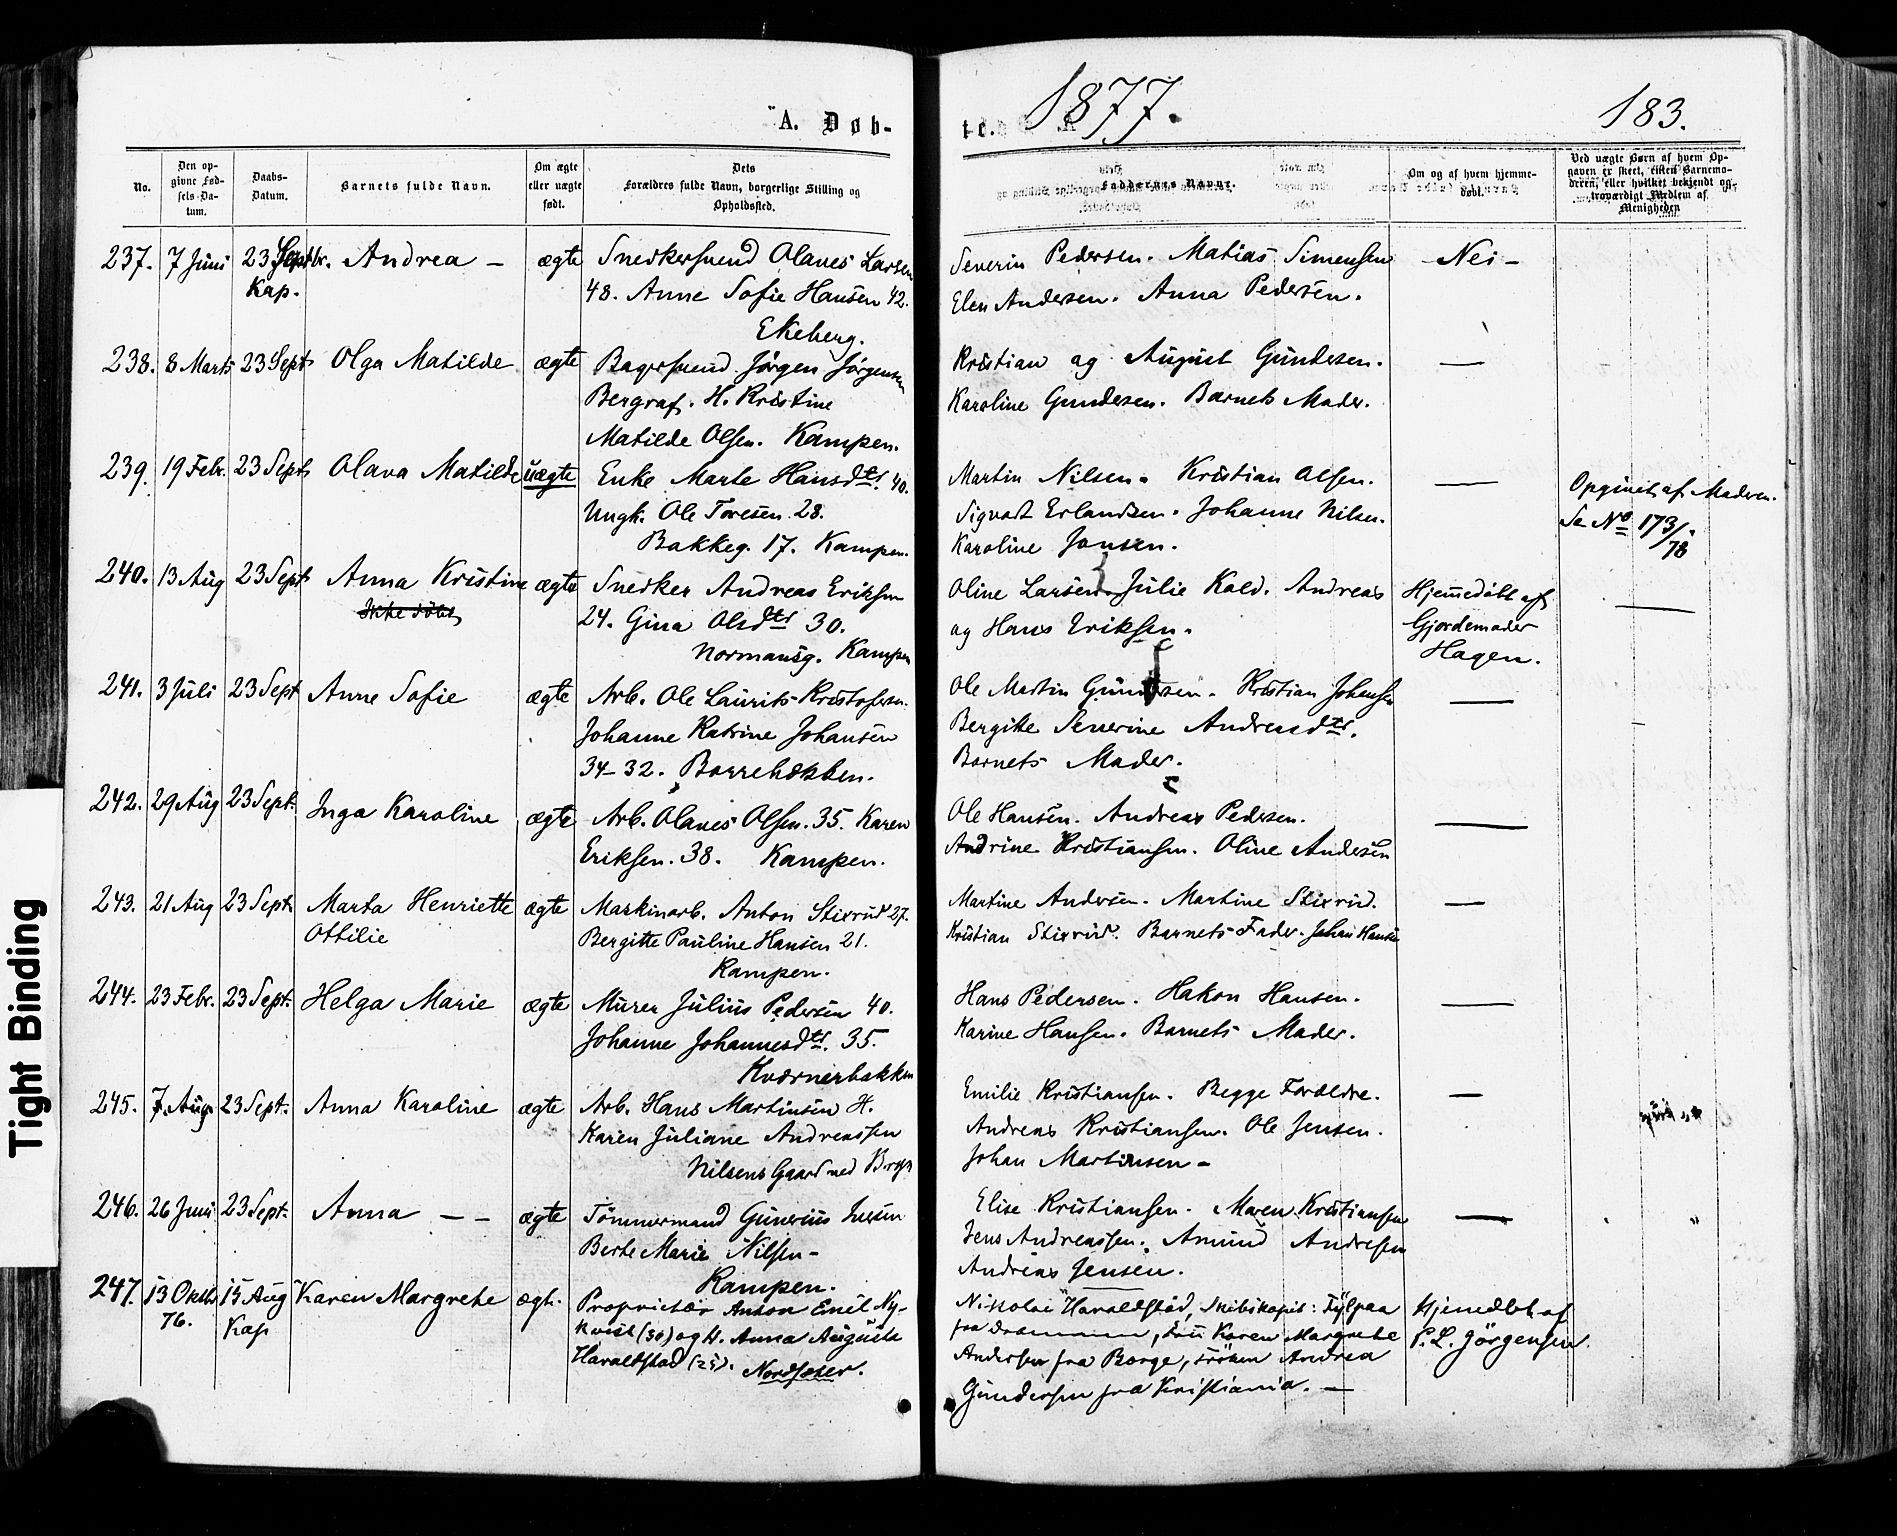 1877.
183.
A. Døb-
te.
No.
Den op-
givne Fød-
sels-Da-
tum.
Daabs-
Datum.
Barnets fulde Navn.
Om ægte
eller uægte
født.
Dets
Forældres fulde Navn, borgerlige Stilling og
Opholdssted.
Faddernes Navne.
Om og af hvem hjemme-
døbt.
Ved uægte Børn af hvem Op-
gaven er skeet, enten Barnemo-
deren, eller hvilket bekjendt og
troværdigt Medlem af
Menigheden
237. 7 Juni 23 Septbr. Andrea – ægte Snedkersvend Olaves Larsen
Kap. 48. Anne Sofie Hansen 42.
Ekeberg.
Severin Pedersen. Matias Simensen – Nei –
Elen Andersen. Anna Pedersen.
238. 8 Marts 23 Sept Olga Matilde ægte Bagersvend Jørgen Jørgensen
Bergraf. H. Kristine
Matilde Olsen. Kampen.
Kristian og August Gundesen. —
Karoline Gundesen. Barnets Moder.
239. 19 Febr. 23 Sept Olava Matilde uægte Enke Marte Hansdtr. 40.
Ungk. Ole Toresen 28.
Bakkeg. 17. Kampen.
Martin Nilsen. Kristian Olsen. —
Sigvart Erlandsen. Johanne Nilsen.
Karoline Jonsen.
Opgivet af Moderen.
Se No 173/78
240. 13 Aug 23 Sept Anna Kristine ægte Snedker Andreas Eriksen
Ikke døbt 24. Gina Olsdtr 30.
Normansg. Kampen
Oline Larsen Julie Kold. Andreas Hjemmedøbt af —
og Hans Eriksen. Gjordemoder
Hagen.
241. 3 Juli 23 Sept Anne Sofie ægte Arb. Ole Laurits Kristofersen.
Johanne Katrine Johansen
34–32. Borrebækken.
Ole Martin Gundesen. Kristian Johansen —
Bergitte Severine Andreasdtr.
Barnets Moder.
242. 29 Aug 23 Sept. Inga Karoline ægte Arb. Olaves Olsen. 35. Karen
Eriksen. 38. Kampen.
Ole Hansen. Andreas Pedersen. —
Andrine Kristiansen. Oline Andesen
243. 21 Aug 23 Sept. Marta Henriette ægte Maskinarb. Anton Stixrud 27.
Ottilie Bergitte Pauline Hansen 21.
Kampen.
Martine Andersen. Martine Stixrud. —
Kristian Stixrud. Barnets Fader. Johan Hansen
244. 23 Febr. 23 Sept. Helga Marie ægte Murer Julius Pedersen 40.
Johanne Johannesdtr. 35.
Kværnerbakken
Hans Pedersen. Hakon Hansen. —
Karine Hansen. Barnets Moder.
245. 7 Aug. 23 Sept. Anna Karoline ægte Arb. Hans Martinsen H.
Karen Juliane Andreassen
Nilsens Gaard ved
Emilie Kristiansen. Begge Forældre. —
Andreas Kristiansen. Ole Jensen.
Johan Martinsen –
246. 26 Juni 23 Sept. Anna – – ægte Tømmermand Gunerius Iversen
Berte Marie Nilsen –
Kampen.
Elise Kristiansen. Maren Kristiansen —
Jens Andreassen. Amund Andresen
Andreas Jensen.
247. 13 Oktbr 15 Aug Karen Margrethe ægt. Proprietær Anton Emil Ny-
76. Kap kvist (30) og H. Anna Auguste
Haraldstad (25). Nordsæter.
Nikolai Haraldstad, Skibskapit: Fylpaa Hjemedbt af
fra Drammen, Karen Margrethe P. L. Jørgensen.
Andersen fra Borge, frøken Andrea
Gundersen fra Kristiania. —
Tight Binding